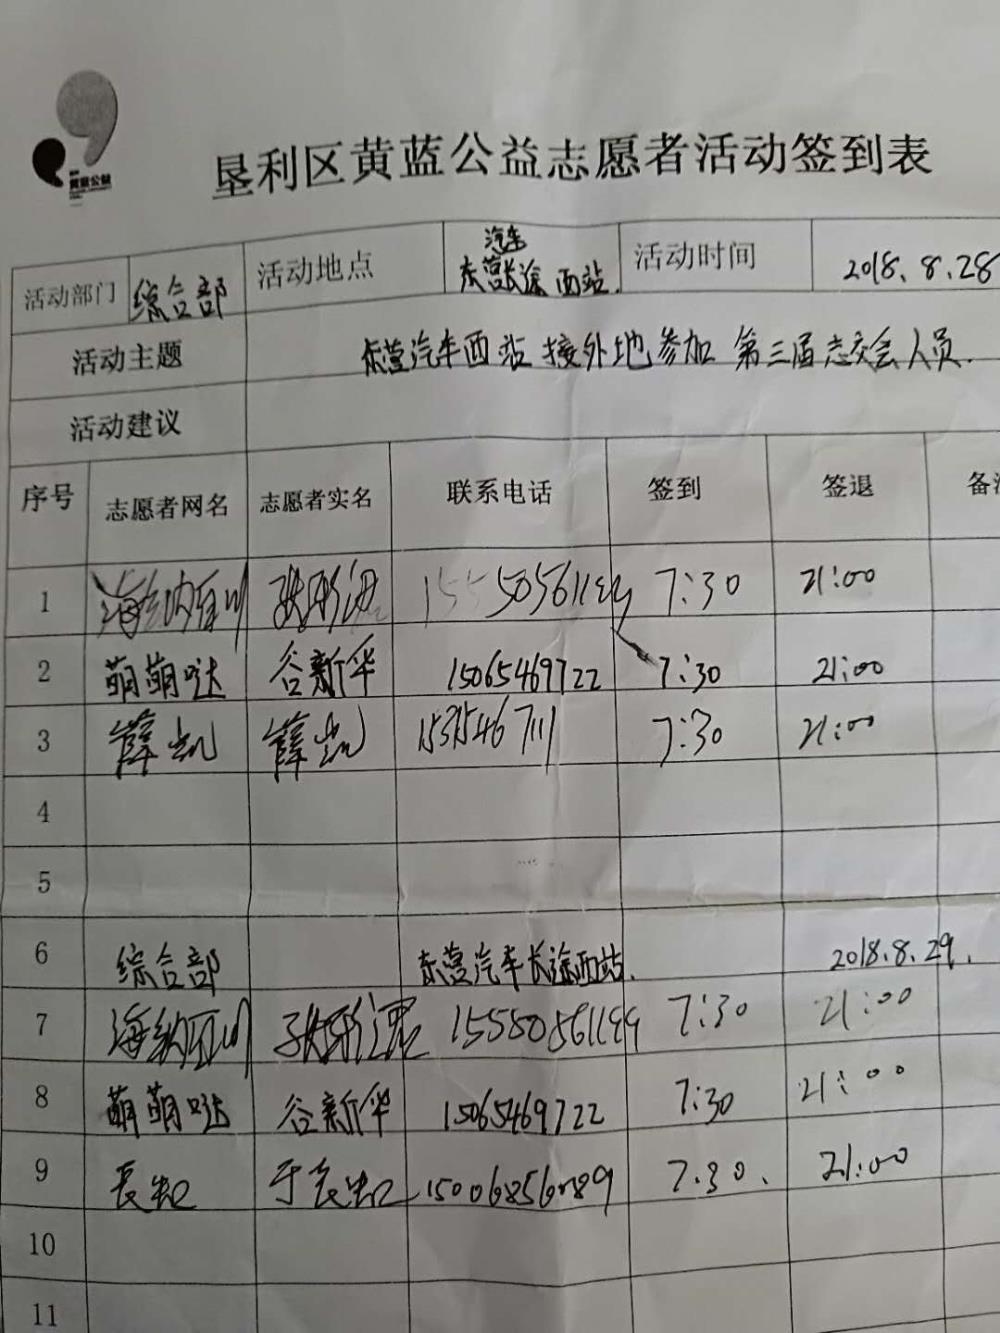 黄蓝公益
垦利区黄蓝公益志愿者活动签到表
活动部门 综合部 活动地点 东营汽车长途西站. 活动时间 2018.8.28
活动主题 东营汽车西站接外地参加第三届志交会人员.
活动建议
序号 志愿者网名 志愿者实名 联系电话 签到 签退
1 海纳百川 7:30 21:00
2 萌萌哒 谷新华 15065469722 7:30 21:00
3 薛凯 薛凯 7:30 21:00
4
5
6 综合部 东营汽车长途西站. 2018.8.29.
7 海纳百川 15550561199 7:30 21:00
8 萌萌哒 谷新华 15065469722 7:30 21:00
9 7:30. 21:00
10
11